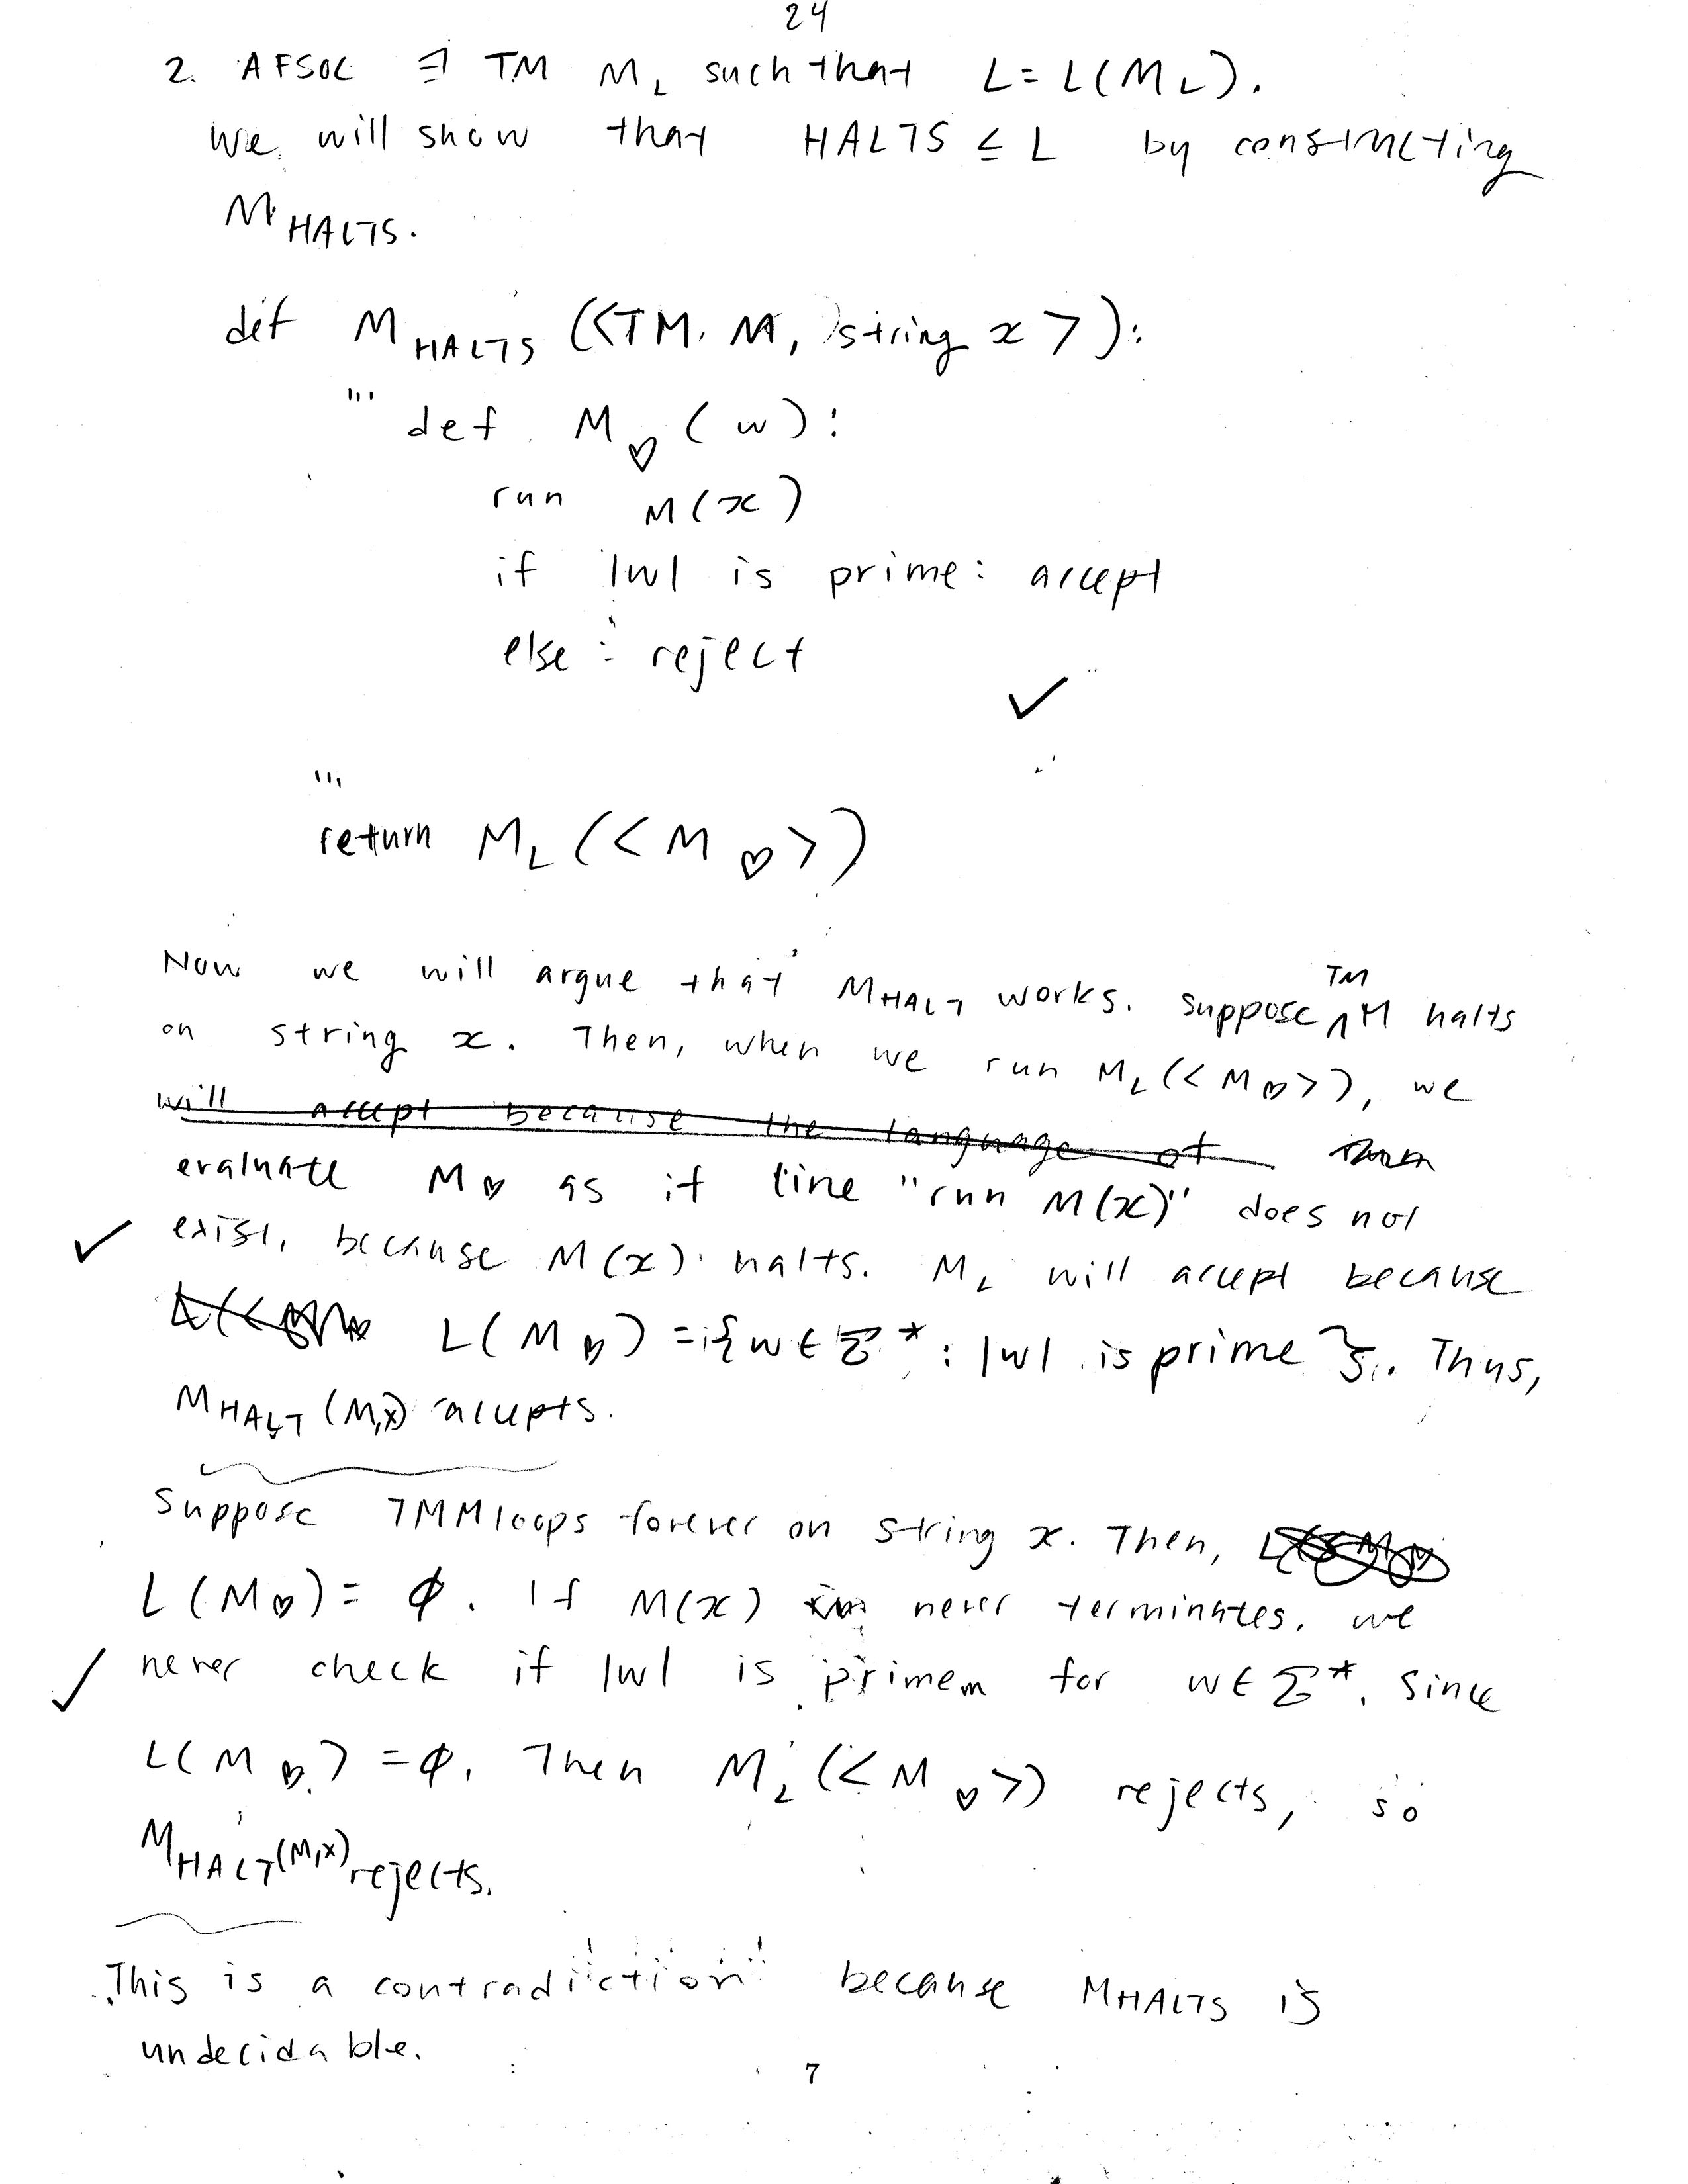 24
2. AFSOC ∃ TM M_L such that L = L(M_L).
we will show that HALTS ≤ L by constructing
M_HALTS.
def M_HALTS (<TM M, string x>):
''' def M_♡ (w):
run M(x)
if |w| is prime: accept
else: reject
✓
'''
return M_L (<M_♡>)
Now we will argue that M_HALT works. Suppose ^TM M halts
on string x. Then, when we run M_L(<M_♡>), we
will accept because the language of
evaluate M_♡ as if line "run M(x)" does not
✓ exist, because M(x) halts. M_L will accept because
L(M_♡) = {w ∈ Σ* : |w| is prime}. Thus,
M_HALT (M,x) accepts.
Suppose TM M loops forever on string x. Then,
L(M_♡) = ∅. If M(x) never terminates, we
✓ never check if |w| is prime for w ∈ Σ*. Since
L(M_♡) = ∅. Then M_L (<M_♡>) rejects, so
M_HALT (M,x) rejects.
This is a contradiction because M_HALTS is
undecidable.
7